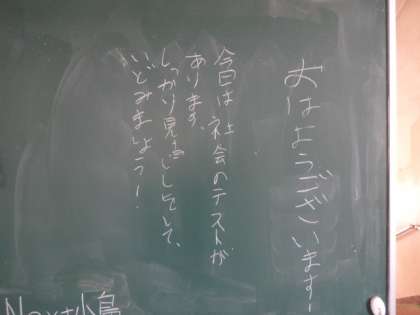 おはようございます！
今日は社会のテストが
あります。
しっかり見直しして、
いどみましょう！
Next小島